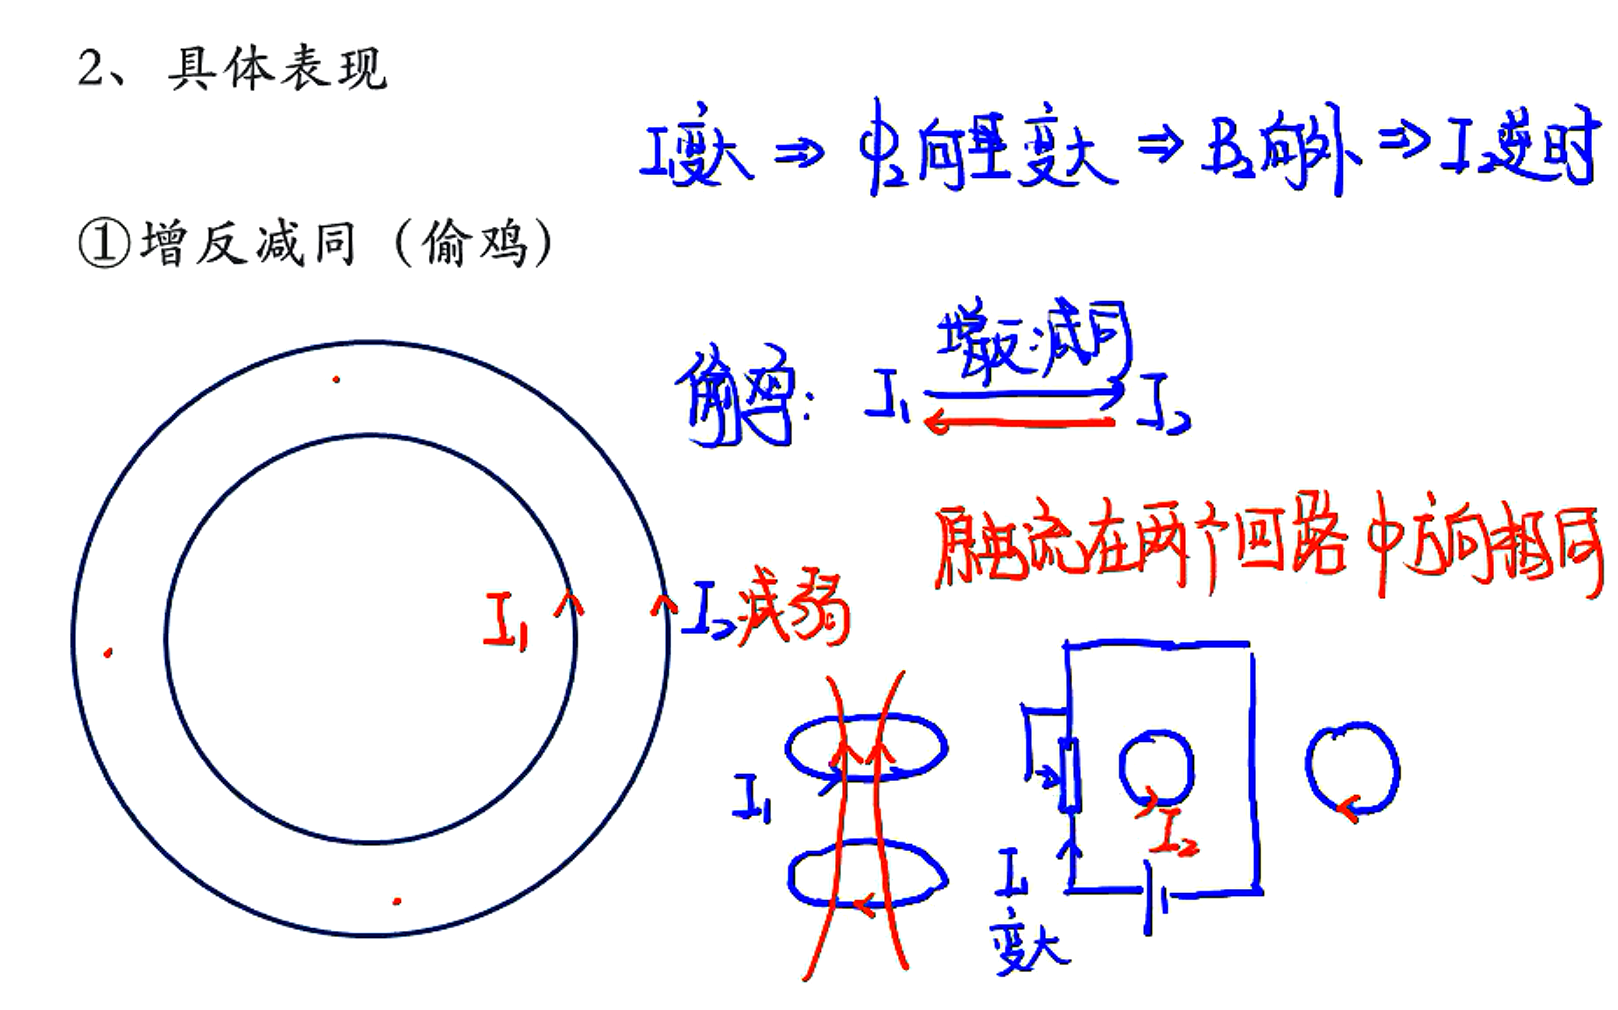 2、具体表现
I₁变大 ⇒ Φ₂向里变大 ⇒ B₂向外 ⇒ I₂逆时
①增反减同（偷鸡）
增反减同
偷鸡: I₁ I₂
原电流在两个回路中方向相同
I₁ I₂减弱
I₁
I₂
I₁
变大